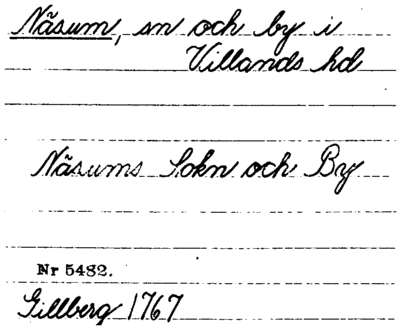 Näsum, sn och by i
Villands hd
Näsums Sokn och By
Nr 5482.
Gillberg 1767